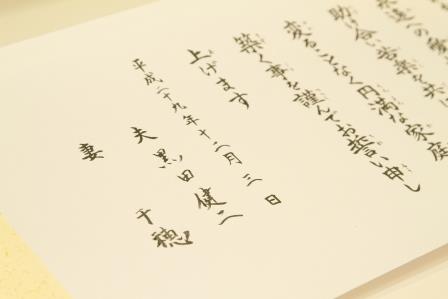 永遠への愛
助け合い苦楽を共に
変ることなく円満な家庭
築く事を謹んでお誓い申し
上げます
平成二十九年十二月三日
夫 黒田 健二
妻 千穂